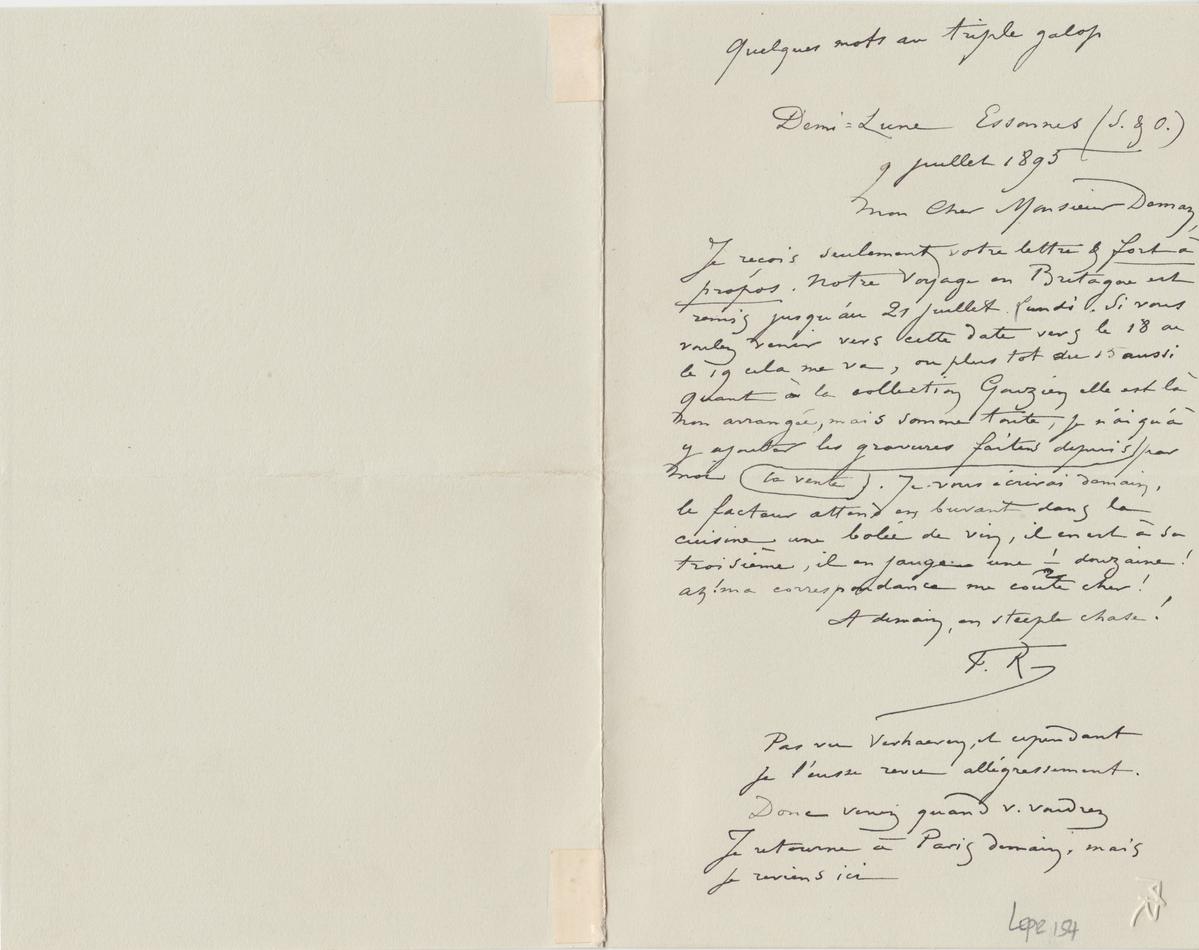 Quelques mots au triple galop
Demi=Lune Essonnes (S. & O.)
9 juillet 1895
Mon Cher Monsieur Deman,
Je reçois seulement votre lettre & fort à
propos. Notre Voyage en Bretagne est
remis jusqu'au 21 juillet. Lundi. Si vous
voulez venir vers cette date vers le 18 ou
le 19 cela me va, ou plus tot du 15 aussi
quant à la collection Gouzien elle est là
non arrangée, mais somme toute, je n'ai qu'à
y ajouter les gravures faites depuis par
moi (la vente). Je vous écrirai demain,
le facteur attend en buvant dans la
cuisine une bolée de vin, il en est à sa
troisième, il en jauge une 1/2 douzaine!
ay! ma correspondance me coûte cher!
A demain, en steeple chase!
F. R
Pas vu Verhaeren, et cependant
je l'eusse revu allégressement.
Donc venez quand v. voudrez
Je retourne à Paris demain, mais
je reviens ici
Lepr 154